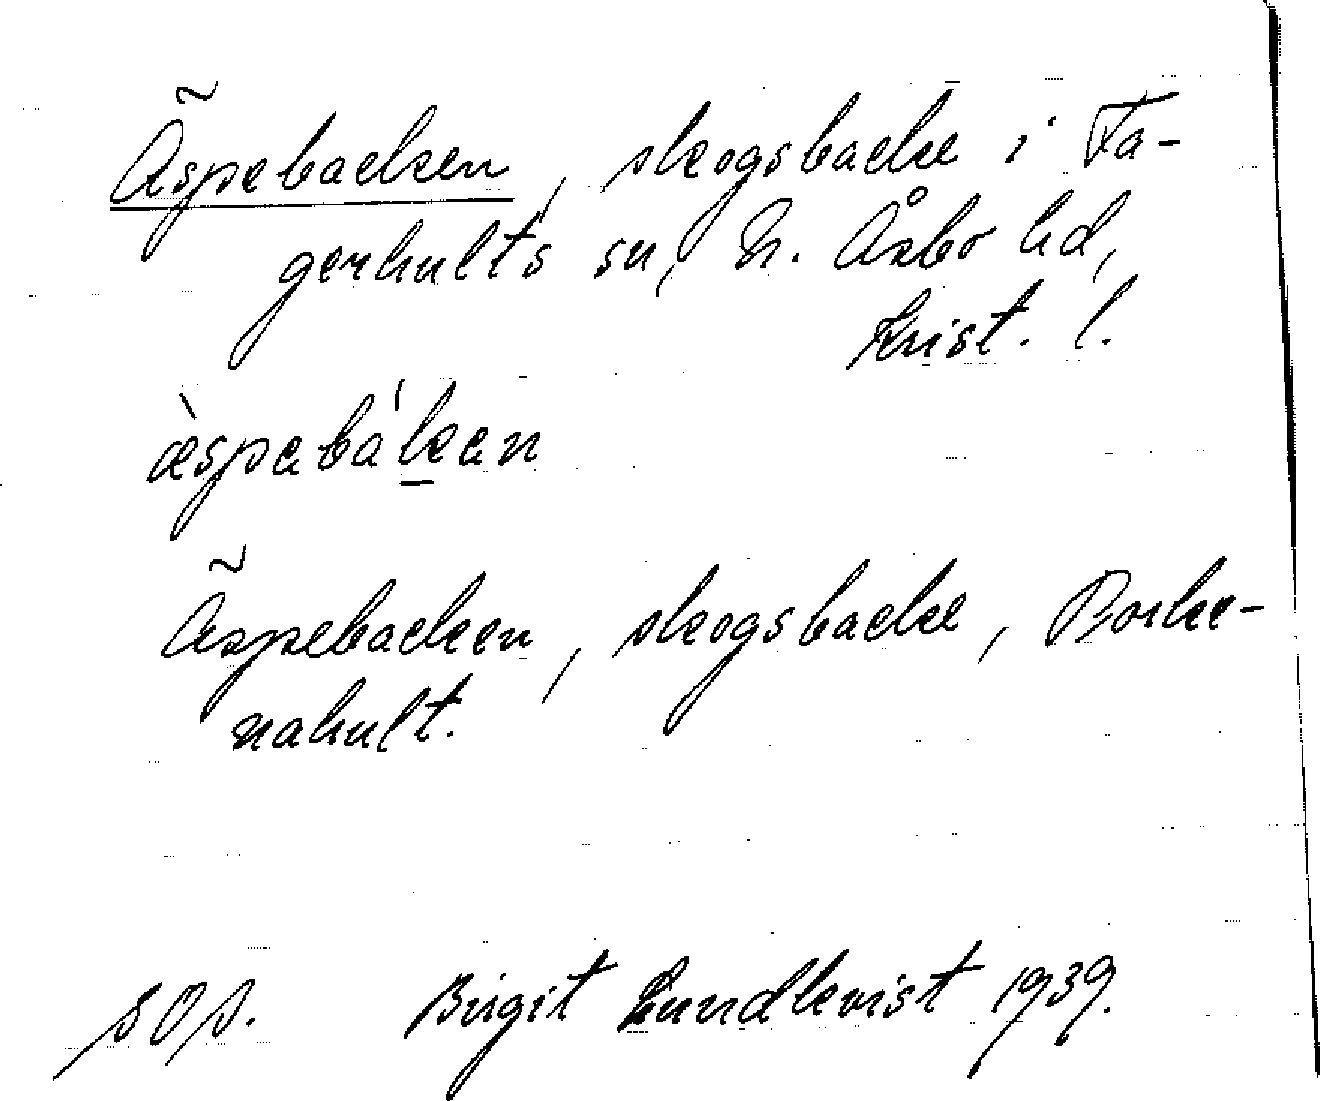 Äspebacken, skogsbacke i Fa-
gerhults sn, N. Åsbo hd,
Krist. l.
æ̀spebák̲en
Äspebacken, skogsbacke, Borke-
nahult.
SOS. Birgit Lundkvist 1939.